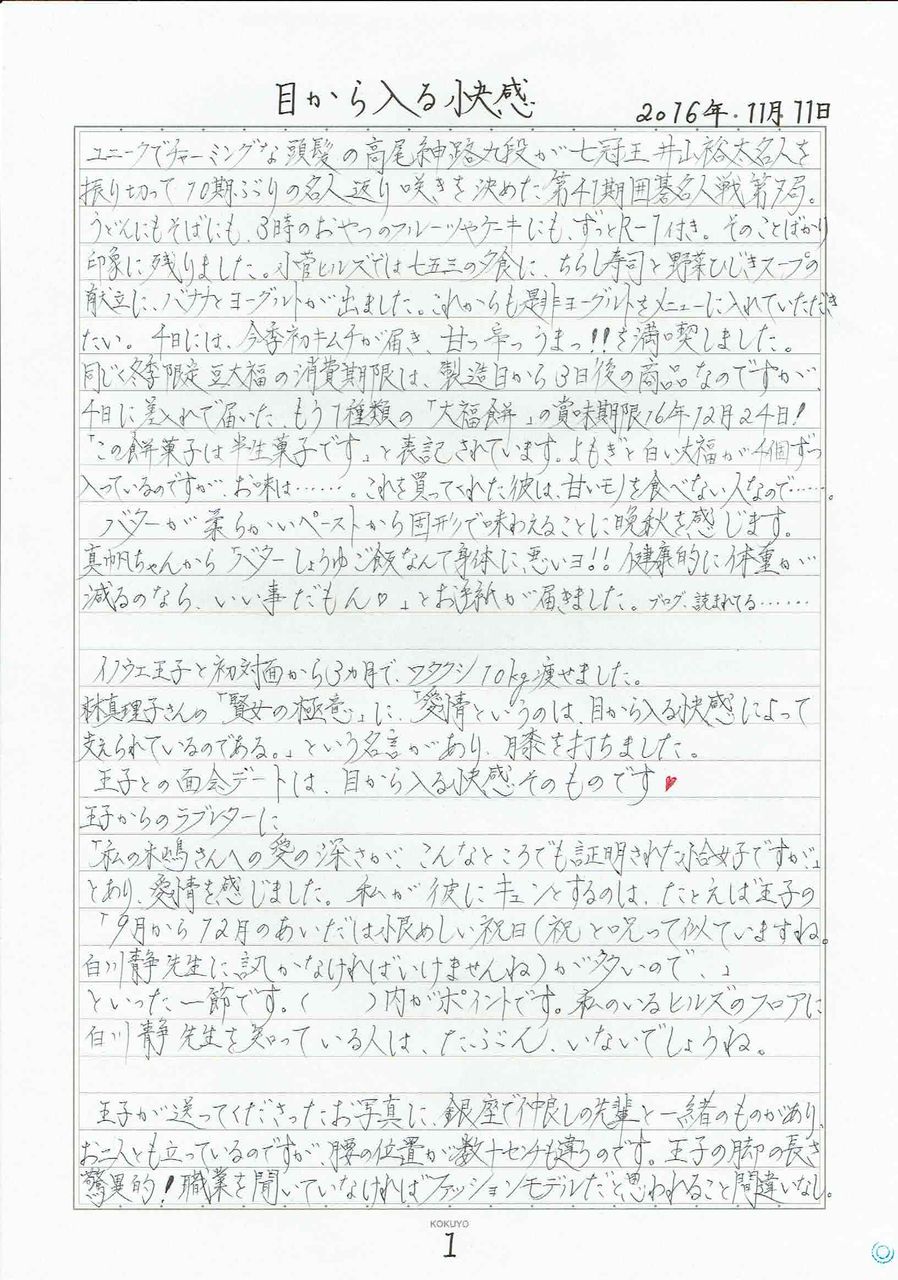 目から入る快感
2016年.11月.11日
ユニークでチャーミングな頭髪の高尾紳路九段が七冠王井山裕太名人を
振り切って10期ぶりの名人返り咲きを決めた第41期囲碁名人戦第7局。
うどんにもそばにも、3時のおやつのフルーツやケーキにも、ずっとR-1付き。そのことばかり
印象に残りました。小菅ヒルズでは七五三の夕食に、ちらし寿司と野菜ひじきスープの
献立に、バナナとヨーグルトが出ました。これからも是非ヨーグルトをメニューに入れていただき
たい。4日には、今季初キムチが届き、甘っ辛っうまっ!!を満喫しました。
同じく冬季限定豆大福の消費期限は、製造日から3日後の商品なのですが、
4日に差入れで届いた、もう1種類の「大福餅」の賞味期限16年12月24日!
「この餅菓子は半生菓子です」と表記されています。よもぎと白い大福が4個ずつ
入っているのですが、お味は……。これを買ってくれた彼は、甘いモノを食べない人なので……。
バターが柔らかいペーストから固形で味わえることに晩秋を感じます。
真帆ちゃんから「バターしょうゆご飯なんて身体に悪いヨ!!健康的に体重が
減るのなら、いい事だもん♡」とお手紙が届きました。ブログ、読まれてる……
イノウエ王子と初対面から3ヵ月で、ワタクシ10kg痩せました。
林真理子さんの「賢女の極意」に、「愛情というのは、目から入る快感によって
支えられているのである。」という名言があり、膝を打ちました。
王子との面会デートは、目から入る快感そのものです♥
王子からのラブレターに
「私の木嶋さんへの愛の深さが、こんなところでも証明された恰好ですが」
とあり、愛情を感じました。私が彼にキュンとするのは、たとえば王子の
「9月から12月のあいだは恨めしい祝日(祝と呪って似ていますね。
白川静先生に訊かなければいけませんね)が多いので、」
といった一節です。(　　)内がポイントです。私のいるヒルズのフロアに
白川静先生を知っている人は、たぶん、いないでしょうね。
王子が送ってくださったお写真に、銀座で仲良しの先輩と一緒のものがあり、
お二人とも立っているのですが、腰の位置が数十センチも違うのです。王子の脚の長さ
驚異的!職業を聞いていなければファッションモデルだと思われること間違いなし。
KOKUYO
1